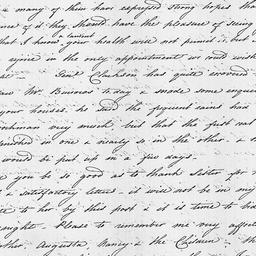 a many of them have expressed strong hopes tha
ness of it they should have the pleasure of seeing
that I know your health will not permit it, but
a lament
rejoice in the only appointment we could wish
Gail Clarkson has quite recovered
saw Mr to day & made some enqui
your houses. he said the frequent rains had
very much, but that the first coat
finished in one & nearly so in the other, & t
would be put up in a few days.
you be so good as to thank sister for
& satisfactory letter - it will not be in my
to her by this post & it is time to bid
Please to remember me very affect
other, Augusta, Nancy & the Children - th